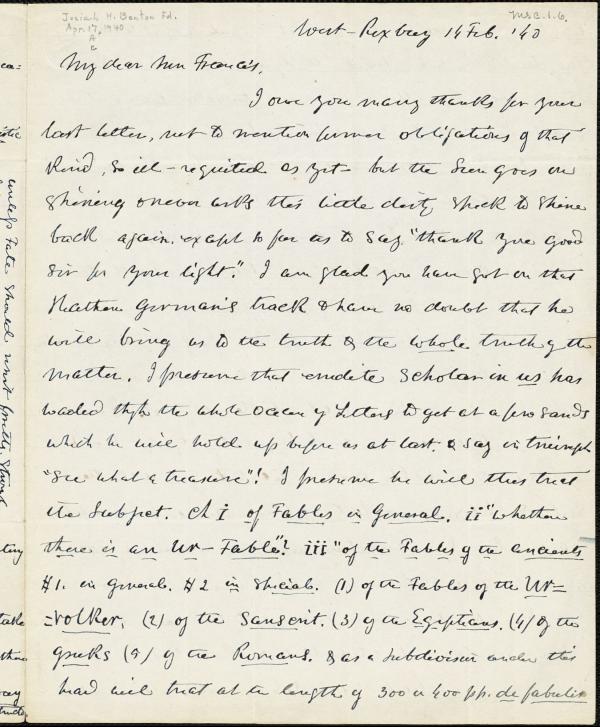 Josiah H. Benton Fd.
Apr. 17, 1940
Ms.C.1.6.
West-Roxbury 14 Feb. '40
My dear Mr Francis,
I owe you many thanks for your
last letter, not to mention former obligations of that
kind, so ill-requited as yet - but the Sun goes on
shining & never asks this little dirty speck to shine
back again, except so far as to say "thank you good
Sir for your light." I am glad you have got on that
Heathen German's track & have no doubt that he
will bring us to the truth & the whole truth of the
matter. I presume that erudite Scholar in us has
waded thro the whole Ocean of Letters to get at a few sands
which he will hold up before us at last, & say in triumph
"See what a treasure"! I presume he will thus treat
the Subject. Ch I of Fables in General. ii "whether
there is an Ur-Fable"? iii "of the Fables of the ancients
§1. in General. §2 in Special. (1) of the Fables of the Ur=
=volker, (2) of the Sanscrit. (3) of the Egyptians. (4) of the
Greeks (5) of the Romans. & as a subdivision under this
head will treat at the length of 300 or 400 pp. de fabulis
ca=
unless Fate should